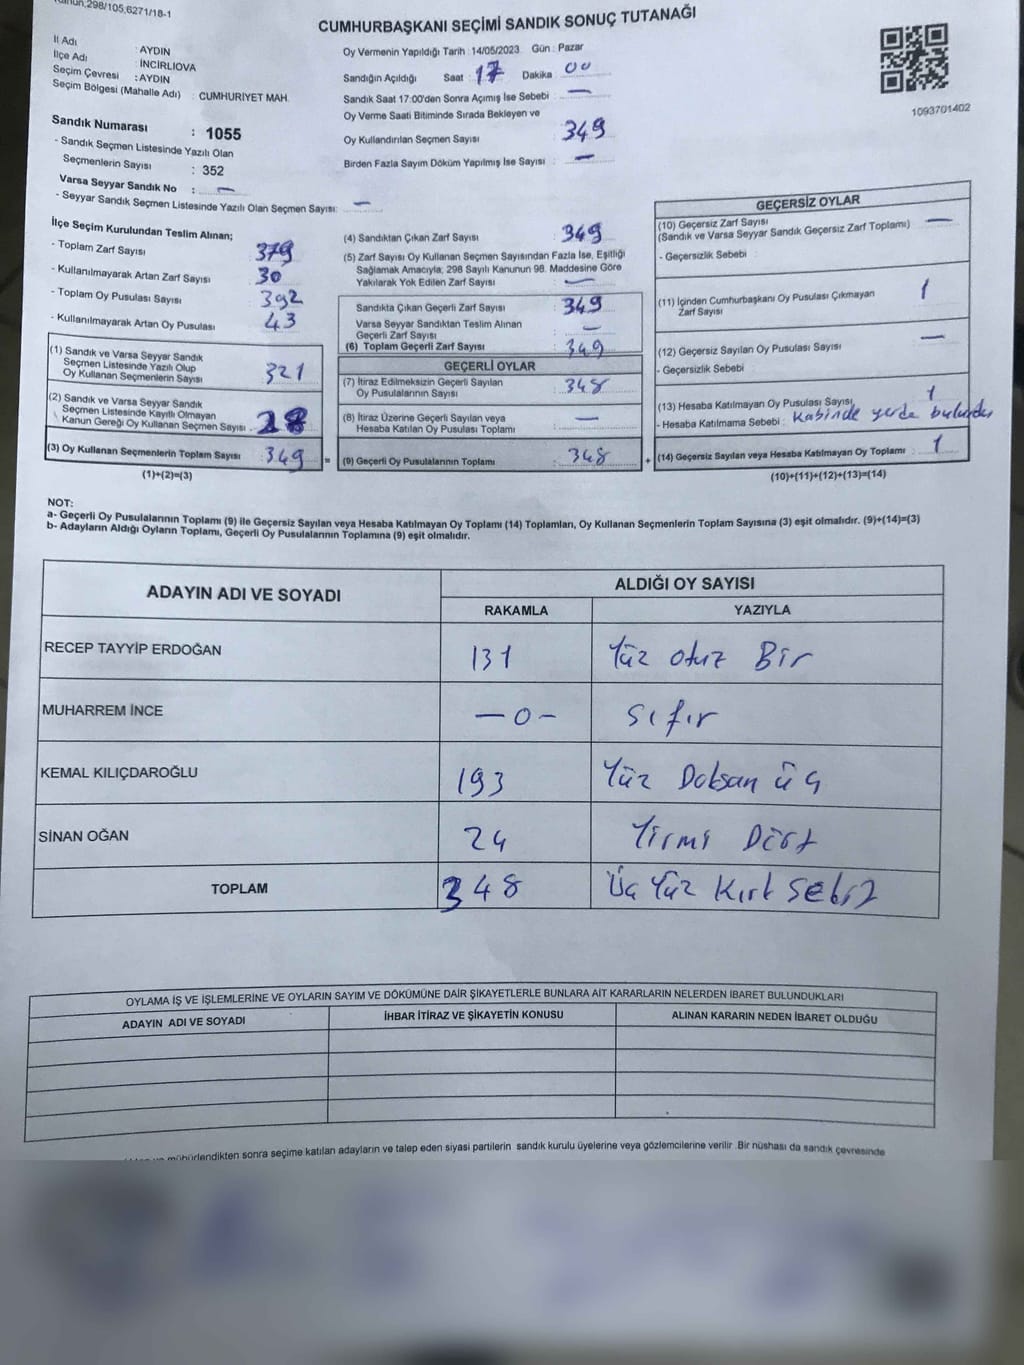 Kanun,298/105,6271/18-1
CUMHURBAŞKANI SEÇİMİ SANDIK SONUÇ TUTANAĞI
İl Adı : AYDIN
İlçe Adı : İNCİRLİOVA
Seçim Çevresi : AYDIN
Seçim Bölgesi (Mahalle Adı) : CUMHURİYET MAH.
Sandık Numarası : 1055
- Sandık Seçmen Listesinde Yazılı Olan
Seçmenlerin Sayısı : 352
Varsa Seyyar Sandık No : —
- Seyyar Sandık Seçmen Listesinde Yazılı Olan Seçmen Sayısı: —
Oy Vermenin Yapıldığı Tarih : 14/05/2023 Gün : Pazar
Sandığın Açıldığı Saat : 17 Dakika : 00
Sandık Saat 17:00'den Sonra Açımış İse Sebebi : —
Oy Verme Saati Bitiminde Sırada Bekleyen ve
Oy Kullandırılan Seçmen Sayısı : 349
Birden Fazla Sayım Döküm Yapılmış İse Sayısı : —
1093701402
İlçe Seçim Kurulundan Teslim Alınan;
- Toplam Zarf Sayısı : 379
- Kullanılmayarak Artan Zarf Sayısı : 30
- Toplam Oy Pusulası Sayısı : 392
- Kullanılmayarak Artan Oy Pusulası : 43
(1) Sandık ve Varsa Seyyar Sandık
Seçmen Listesinde Yazılı Olup
Oy Kullanan Seçmenlerin Sayısı : 321
(2) Sandık ve Varsa Seyyar Sandık
Seçmen Listesinde Kayıtlı Olmayan
Kanun Gereği Oy Kullanan Seçmen Sayısı : 28
(3) Oy Kullanan Seçmenlerin Toplam Sayısı : 349
(1)+(2)=(3)
(4) Sandıktan Çıkan Zarf Sayısı : 349
(5) Zarf Sayısı Oy Kullanan Seçmen Sayısından Fazla İse, Eşitliği
Sağlamak Amacıyla; 298 Sayılı Kanunun 98. Maddesine Göre
Yakılarak Yok Edilen Zarf Sayısı : —
Sandıkta Çıkan Geçerli Zarf Sayısı : 349
Varsa Seyyar Sandıktan Teslim Alınan
Geçerli Zarf Sayısı : —
(6) Toplam Geçerli Zarf Sayısı : 349
GEÇERLİ OYLAR
(7) İtiraz Edilmeksizin Geçerli Sayılan
Oy Pusulalarının Sayısı : 348
(8) İtiraz Üzerine Geçerli Sayılan veya
Hesaba Katılan Oy Pusulası Toplamı : —
= (9) Geçerli Oy Pusulalarının Toplamı : 348
GEÇERSİZ OYLAR
(10) Geçersiz Zarf Sayısı : —
(Sandık ve Varsa Seyyar Sandık Geçersiz Zarf Toplamı)
- Geçersizlik Sebebi :
(11) İçinden Cumhurbaşkanı Oy Pusulası Çıkmayan : 1
Zarf Sayısı
(12) Geçersiz Sayılan Oy Pusulası Sayısı : —
- Geçersizlik Sebebi
(13) Hesaba Katılmayan Oy Pusulası Sayısı : 1
- Hesaba Katılmama Sebebi : Kabinde yerde bulundu
+ (14) Geçersiz Sayılan veya Hesaba Katılmayan Oy Toplamı : 1
(10)+(11)+(12)+(13)=(14)
NOT:
a- Geçerli Oy Pusulalarının Toplamı (9) ile Geçersiz Sayılan veya Hesaba Katılmayan Oy Toplamı (14) Toplamları, Oy Kullanan Seçmenlerin Toplam Sayısına (3) eşit olmalıdır. (9)+(14)=(3)
b- Adayların Aldığı Oyların Toplamı, Geçerli Oy Pusulalarının Toplamına (9) eşit olmalıdır.
ADAYIN ADI VE SOYADI ALDIĞI OY SAYISI
RAKAMLA YAZIYLA
RECEP TAYYİP ERDOĞAN 131 Yüz otuz Bir
MUHARREM İNCE —0— sıfır
KEMAL KILIÇDAROĞLU 193 Yüz Doksan üç
SİNAN OĞAN 24 Yirmi Dört
TOPLAM 348 Üç Yüz Kırk Sekiz
OYLAMA İŞ VE İŞLEMLERİNE VE OYLARIN SAYIM VE DÖKÜMÜNE DAİR ŞİKAYETLERLE BUNLARA AİT KARARLARIN NELERDEN İBARET BULUNDUKLARI
ADAYIN ADI VE SOYADI İHBAR İTİRAZ VE ŞİKAYETİN KONUSU ALINAN KARARIN NEDEN İBARET OLDUĞU
mühürlendikten sonra seçime katılan adayların ve talep eden siyasi partilerin sandık kurulu üyelerine veya gözlemcilerine verilir .Bir nüshası da sandık çevresinde